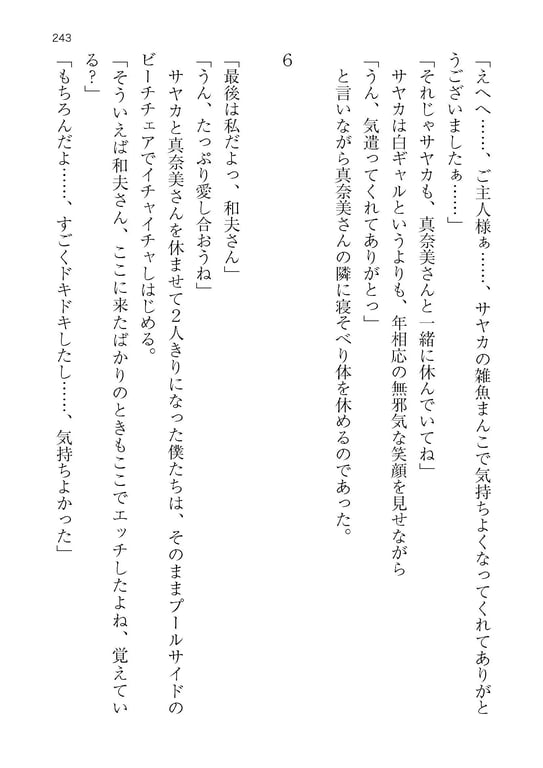 243
「えへへ……、ご主人様ぁ……、サヤカの雑魚まんこで気持ちよくなってくれてありがと
うございましたぁ……」
「それじゃサヤカも、真奈美さんと一緒に休んでいてね」
サヤカは白ギャルというよりも、年相応の無邪気な笑顔を見せながら
「うん、気遣ってくれてありがとっ」
と言いながら真奈美さんの隣に寝そべり体を休めるのであった。
6
「最後は私だよっ、和夫さん」
「うん、たっぷり愛し合おうね」
サヤカと真奈美さんを休ませて2人きりになった僕たちは、そのままプールサイドの
ビーチチェアでイチャイチャしはじめる。
「そういえば和夫さん、ここに来たばかりのときもここでエッチしたよね、覚えてい
る?」
「もちろんだよ……、すごくドキドキしたし……、気持ちよかった」